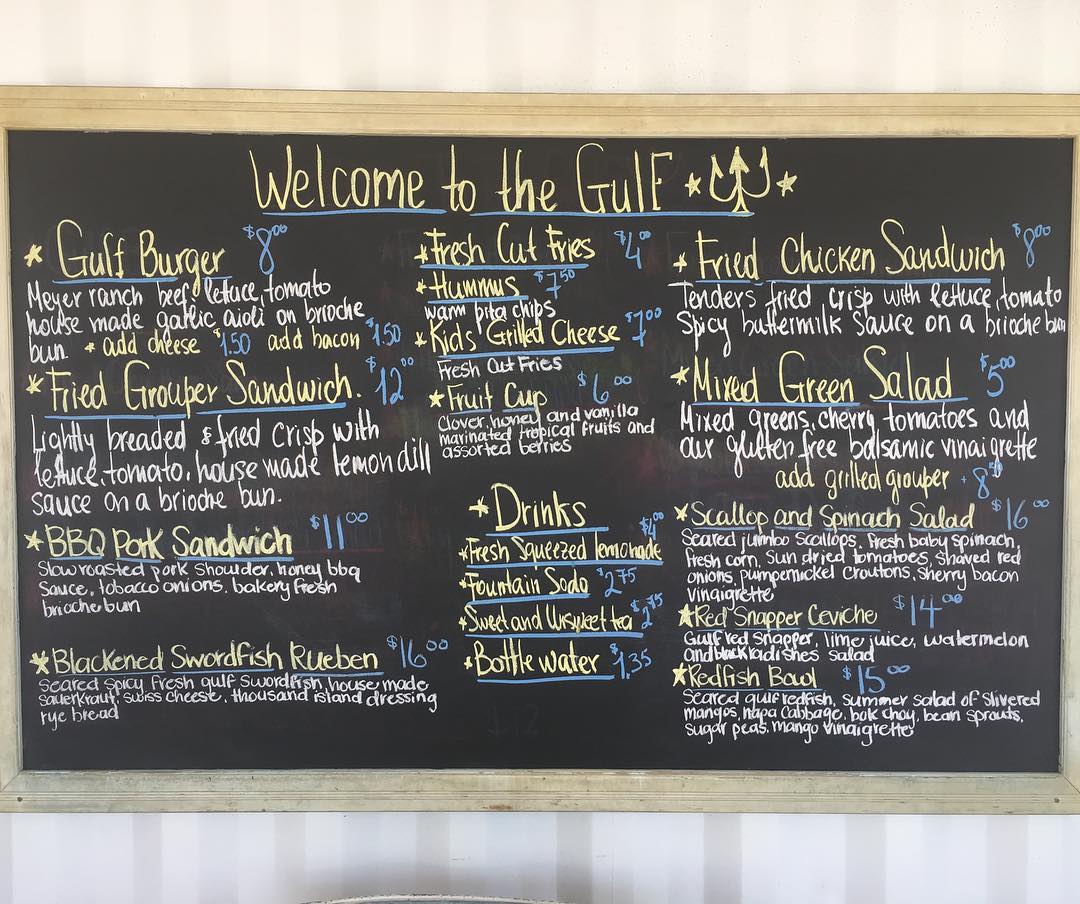 Welcome to the Gulf
Gulf Burger $8.00
Meyer ranch beef, lettuce, tomato
house made garlic aioli on brioche
bun. * add cheese $1.50 add bacon $1.50
Fried Grouper Sandwich. $12.00
Lightly breaded & fried crisp with
lettuce, tomato, house made lemon dill
sauce on a brioche bun.
BBQ Pork Sandwich $11.00
Slow roasted pork shoulder, honey bbq
Sauce, tobacco onions, bakery fresh
brioche bun
Blackened Swordfish Rueben $16.00
Seared spicy fresh gulf swordfish, house made
sauerkraut, swiss cheese, thousand island dressing
rye bread
Fresh Cut Fries $4.00
Hummus $7.50
warm pita chips
Kids Grilled Cheese $7.00
Fresh Cut Fries
Fruit Cup $6.00
Clover, honey and vanilla
marinated tropical fruits and
assorted berries
Drinks
Fresh Squeezed lemonade $4.00
Fountain Soda $2.75
Sweet and Unsweet tea $2.75
Bottle water $1.35
Fried Chicken Sandwich $8.00
Tenders fried crisp with lettuce, tomato
Spicy buttermilk sauce on a brioche bun
Mixed Green Salad $5.00
Mixed greens, cherry tomatoes and
our gluten free balsamic vinaigrette
add grilled grouper + 8.50
Scallop and Spinach Salad $16.00
Seared jumbo scallops, fresh baby spinach,
fresh corn, sun dried tomatoes, shaved red
onions, pumpernickel croutons, sherry bacon
vinaigrette
Red Snapper Ceviche $14.00
Gulf red snapper, lime juice, watermelon
and black radishes salad
Redfish Bowl $15.00
Seared gulf redfish, summer salad of slivered
mangos, napa cabbage, bok choy, bean sprouts,
sugar peas, mango vinaigrette